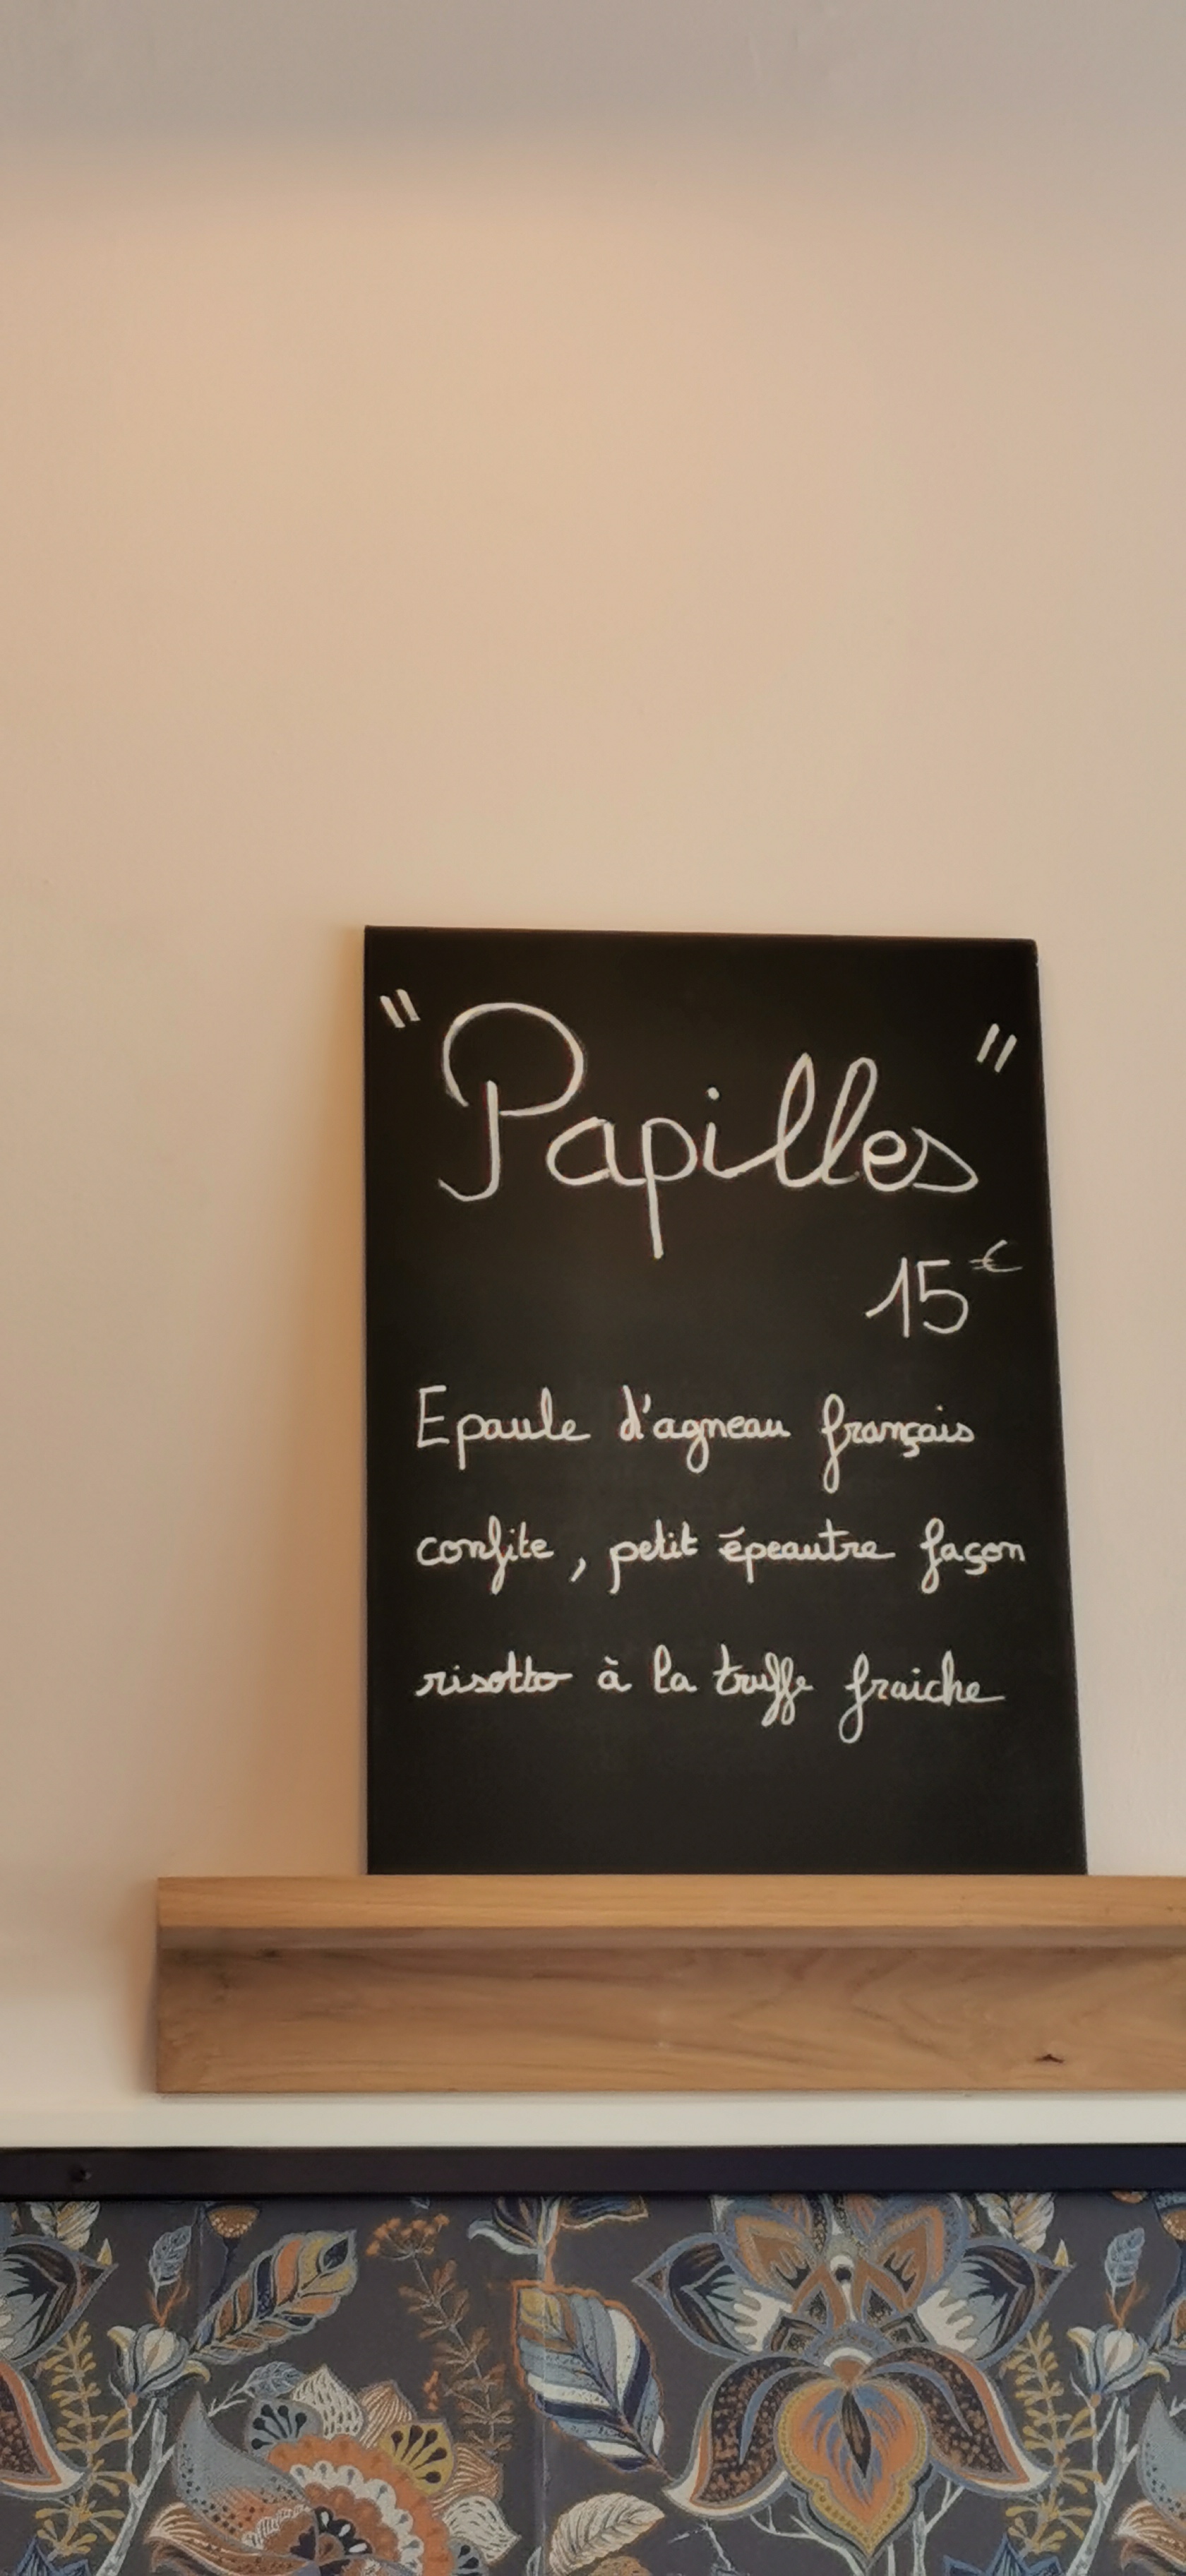 "Papilles"
15€
Epaule d'agneau français
confite, petit épeautre façon
risotto à la truffe fraiche